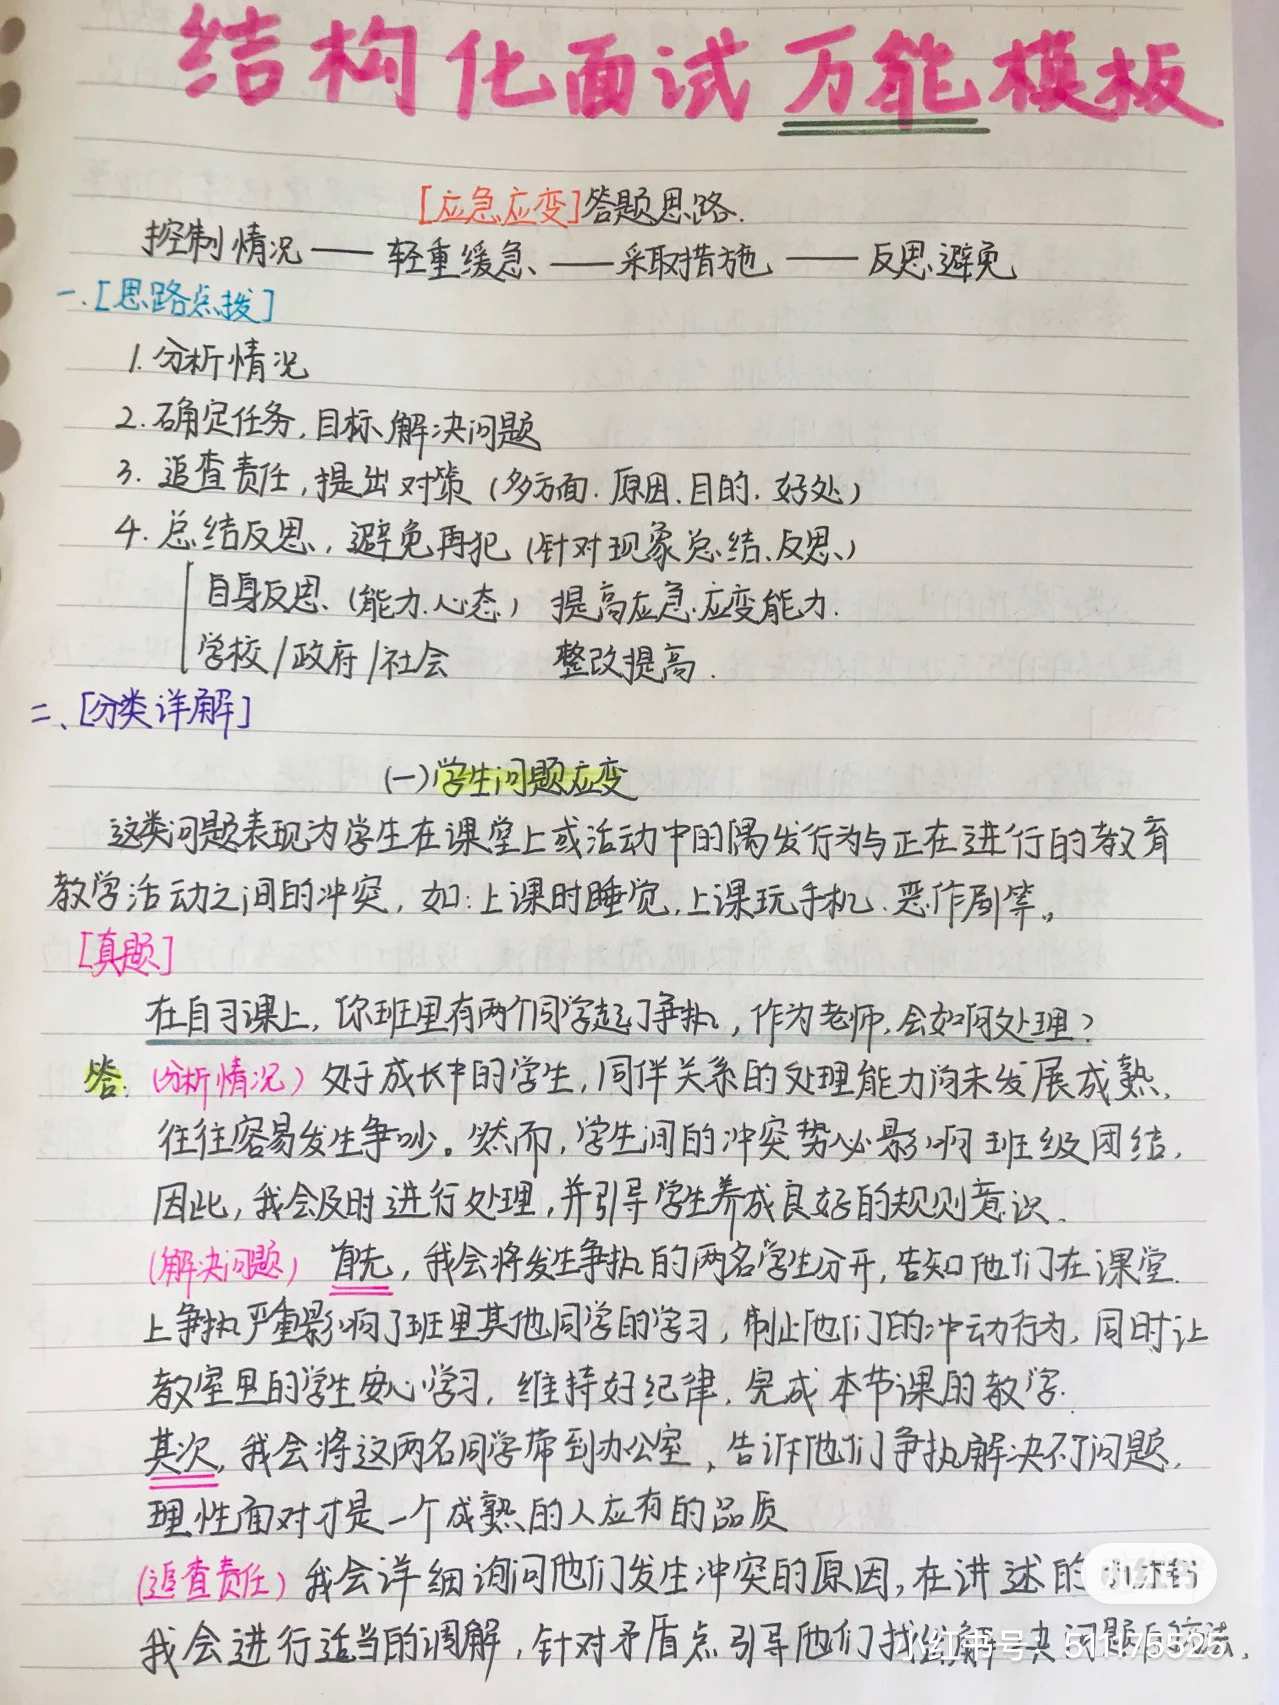 结构化面试万能模板
[应急应变]答题思路.
控制情况——轻重缓急、——采取措施——反思避免
一.[思路点拨]
1.分析情况
2.确定任务,目标、解决问题
3.追查责任,提出对策(多方面.原因.目的.好处)
4.总结反思,避免再犯(针对现象总结、反思、)
自身反思、(能力.心态) 提高应急、应变能力.
学校/政府/社会 整改提高.
二、[分类详解]
(一)学生问题应变
这类问题表现为学生在课堂上或活动中的偶发行为与正在进行的教育
教学活动之间的冲突,如:上课时睡觉,上课玩手机、恶作剧等。
[真题]
在自习课上,你班里有两个同学起了争执,作为老师,会如何处理?
答:(分析情况)处于成长中的学生,同伴关系的处理能力尚未发展成熟,
往往容易发生争吵。然而,学生间的冲突势必影响班级团结,
因此,我会及时进行处理,并引导学生养成良好的规则意识.
(解决问题)首先,我会将发生争执的两名学生分开,告知他们在课堂
上争执严重影响了班里其他同学的学习,制止他们的冲动行为,同时让
教室里的学生安心学习,维持好纪律,完成本节课的教学.
其次,我会将这两名同学带到办公室,告诉他们争执解决不了问题,
理性面对才是一个成熟的人应有的品质
(追查责任)我会详细询问他们发生冲突的原因,在讲述的
小红书
我会进行适当的调解,针对矛盾点引导他们找出解决问题的方法,
小红书号:511975525